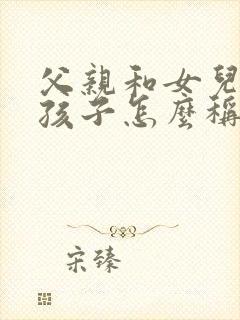 父親和女兒
孩子怎麼稱
宋臻